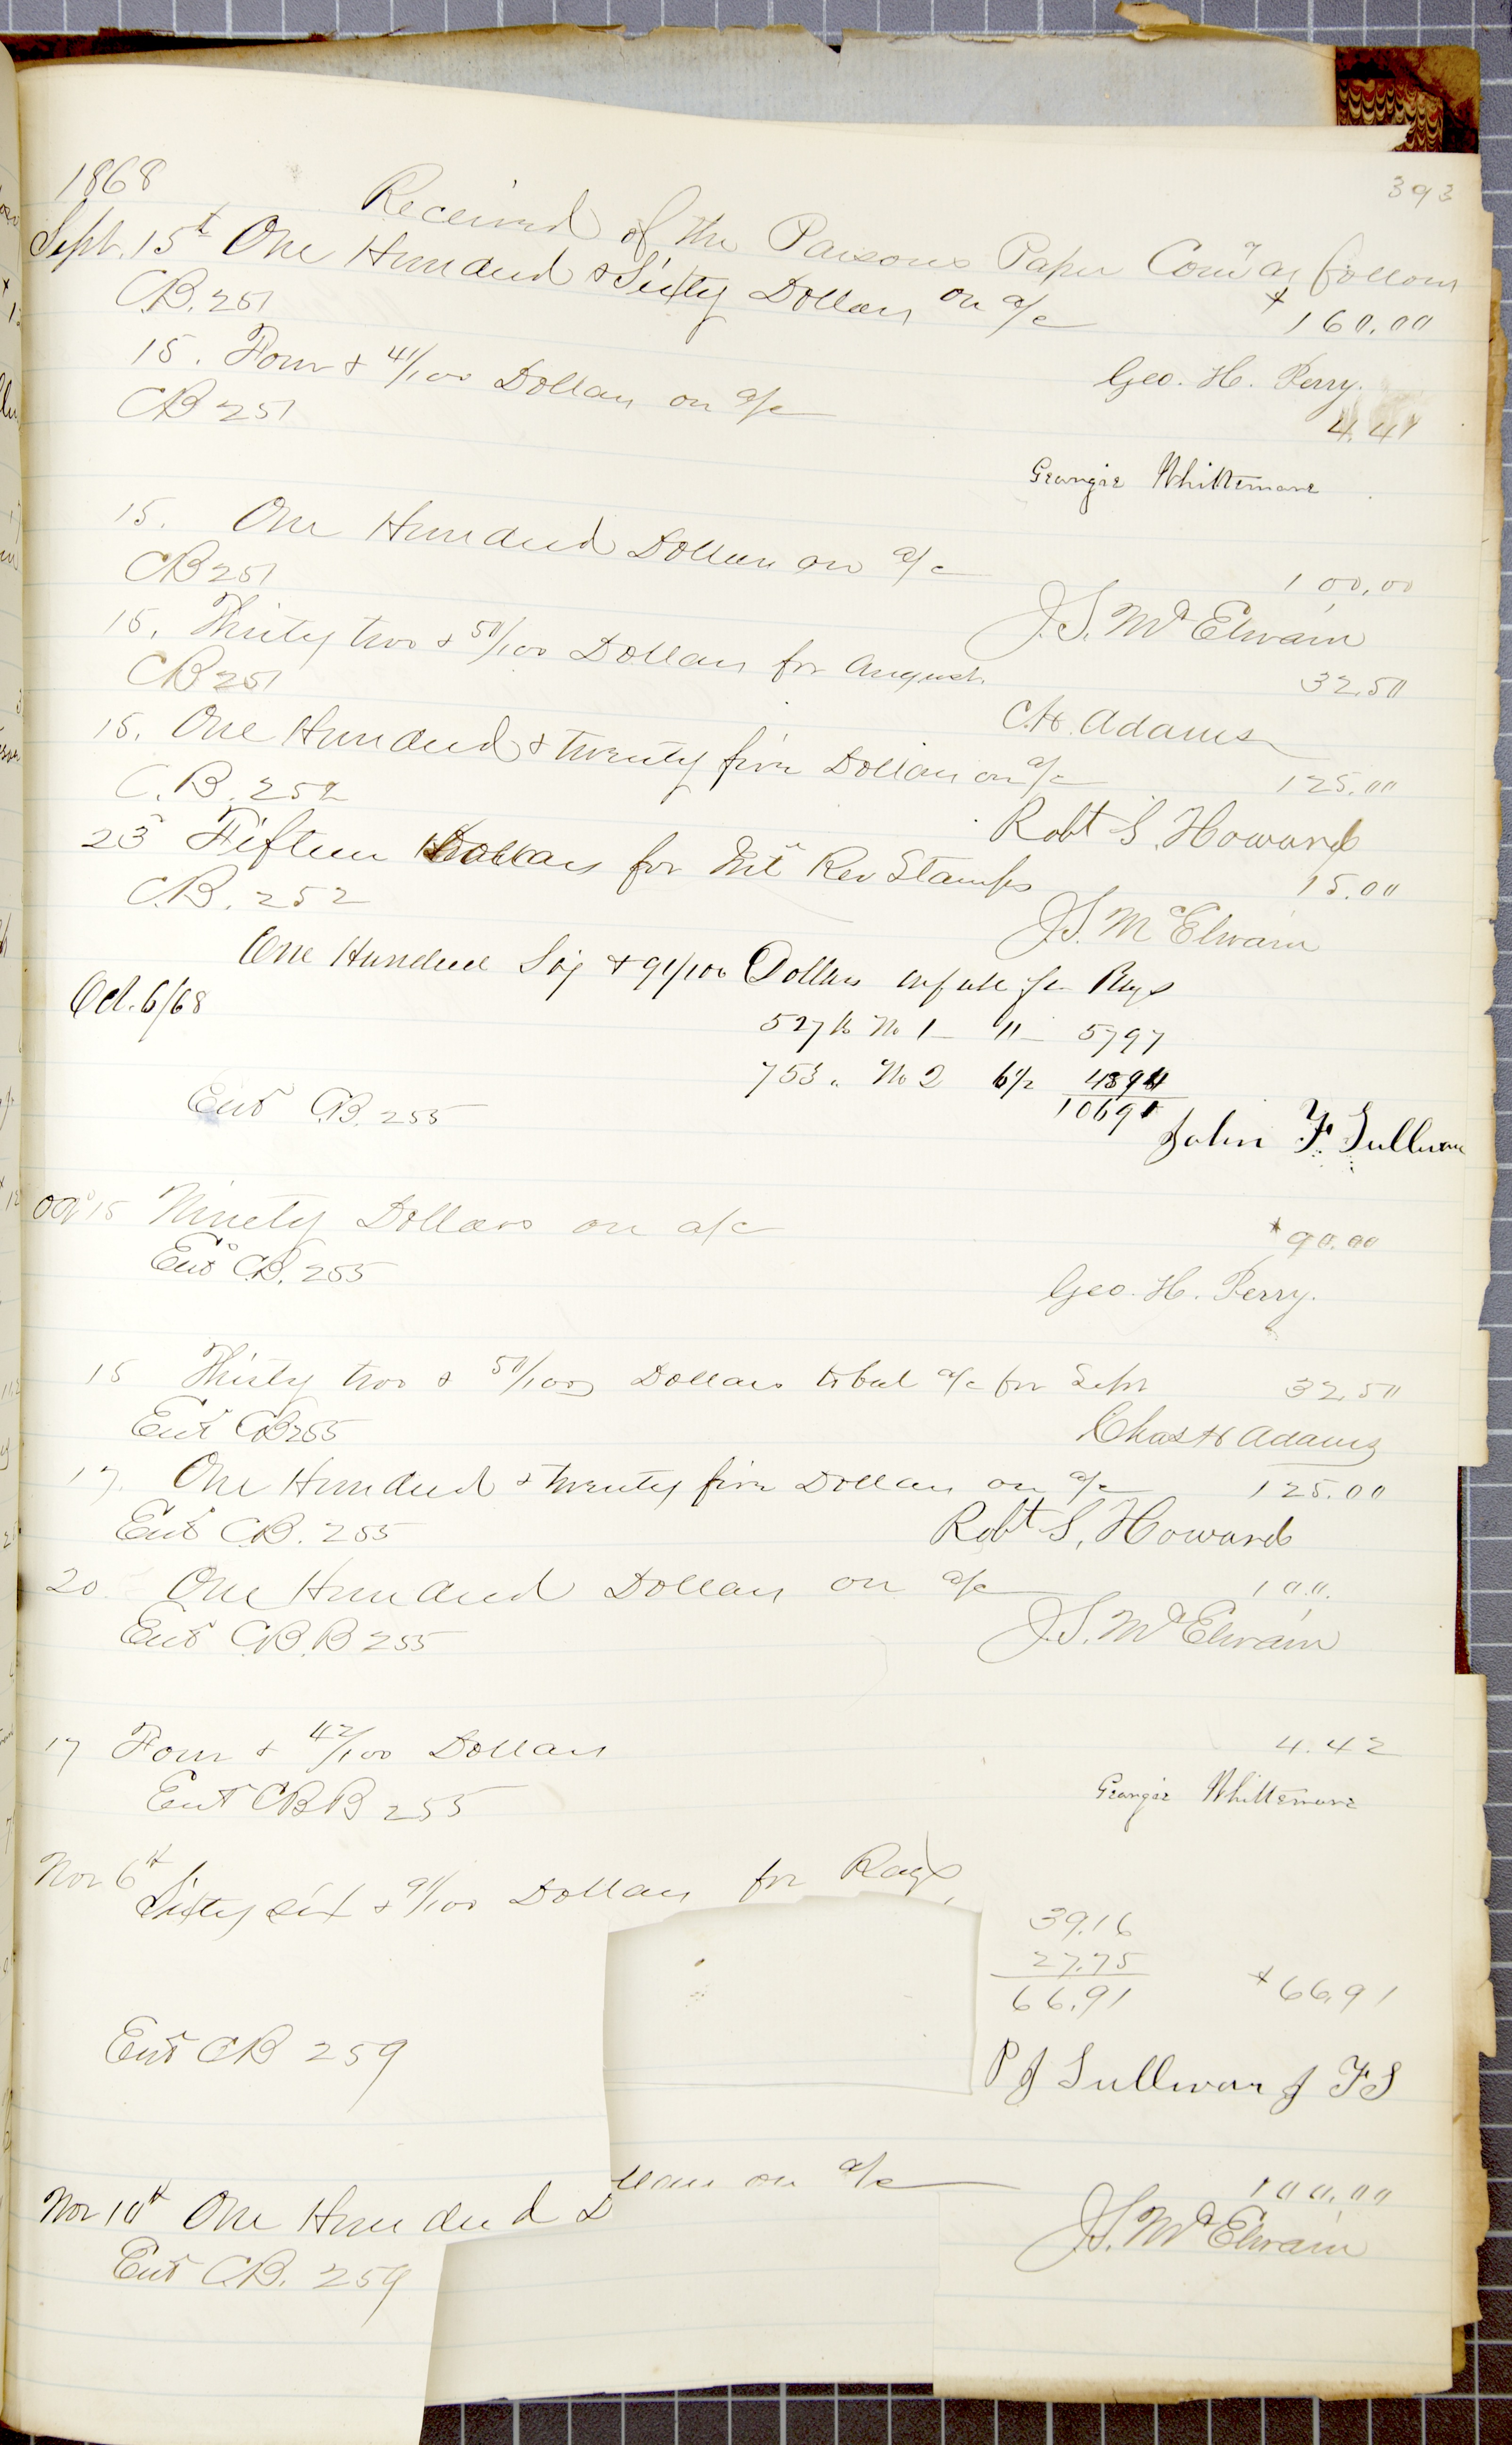 393
1868
Received of the Parsons Paper Comy as follows
Sept. 15t One Hundred & Sixty Dollars on a/c 160.00
C.B. 251
Geo. H. Perry.
15. Four & 41/100 Dollars on a/c 4.41
CB 251
Georgie Whittemore
15. One Hundred Dollars on a/c 100.00
CB 251
J.S. McElwain
15. Thirty two & 50/100 Dollars for August. 32.50
CB 251
C.H. Adams
15. One Hundred & twenty five Dollars on a/c 125.00
C.B. 252
Robt S. Howard
23 Fifteen Dollars for Int Rev Stamps 15.00
C.B. 252
J.S. McElwain
Oct. 6/68 One Hundred Six & 91/100 Dollars in full for Rags
527 lb No 1 11 5797
753 " No 2 6½ 4894
10691
Ent C.B. 255
John F. Sullivan
Oct 15 Ninety Dollars on a/c 90.00
Ent C.B. 255
Geo. H. Perry.
15 Thirty two & 50/100 Dollars to bal a/c for Sept 32.50
Ent CB 255
Chas H Adams
17. One Hundred & twenty five Dollars on a/c 125.00
Ent C.B. 255
Robt S. Howard
20 One Hundred Dollars on a/c 100.
Ent C.B.B 255
J.S. McElwain
17 Four & 42/100 Dollars 4.42
Ent CBB 255
Georgie Whittemore
Nov 6th Sixty six & 91/100 Dollars for Rags
39.16
27.75
66.91 66.91
Ent CB 259
P J Sullivan J F S
Nov 10th One Hundred D llars on a/c 100.00
Ent C.B. 259
J.S. McElwain